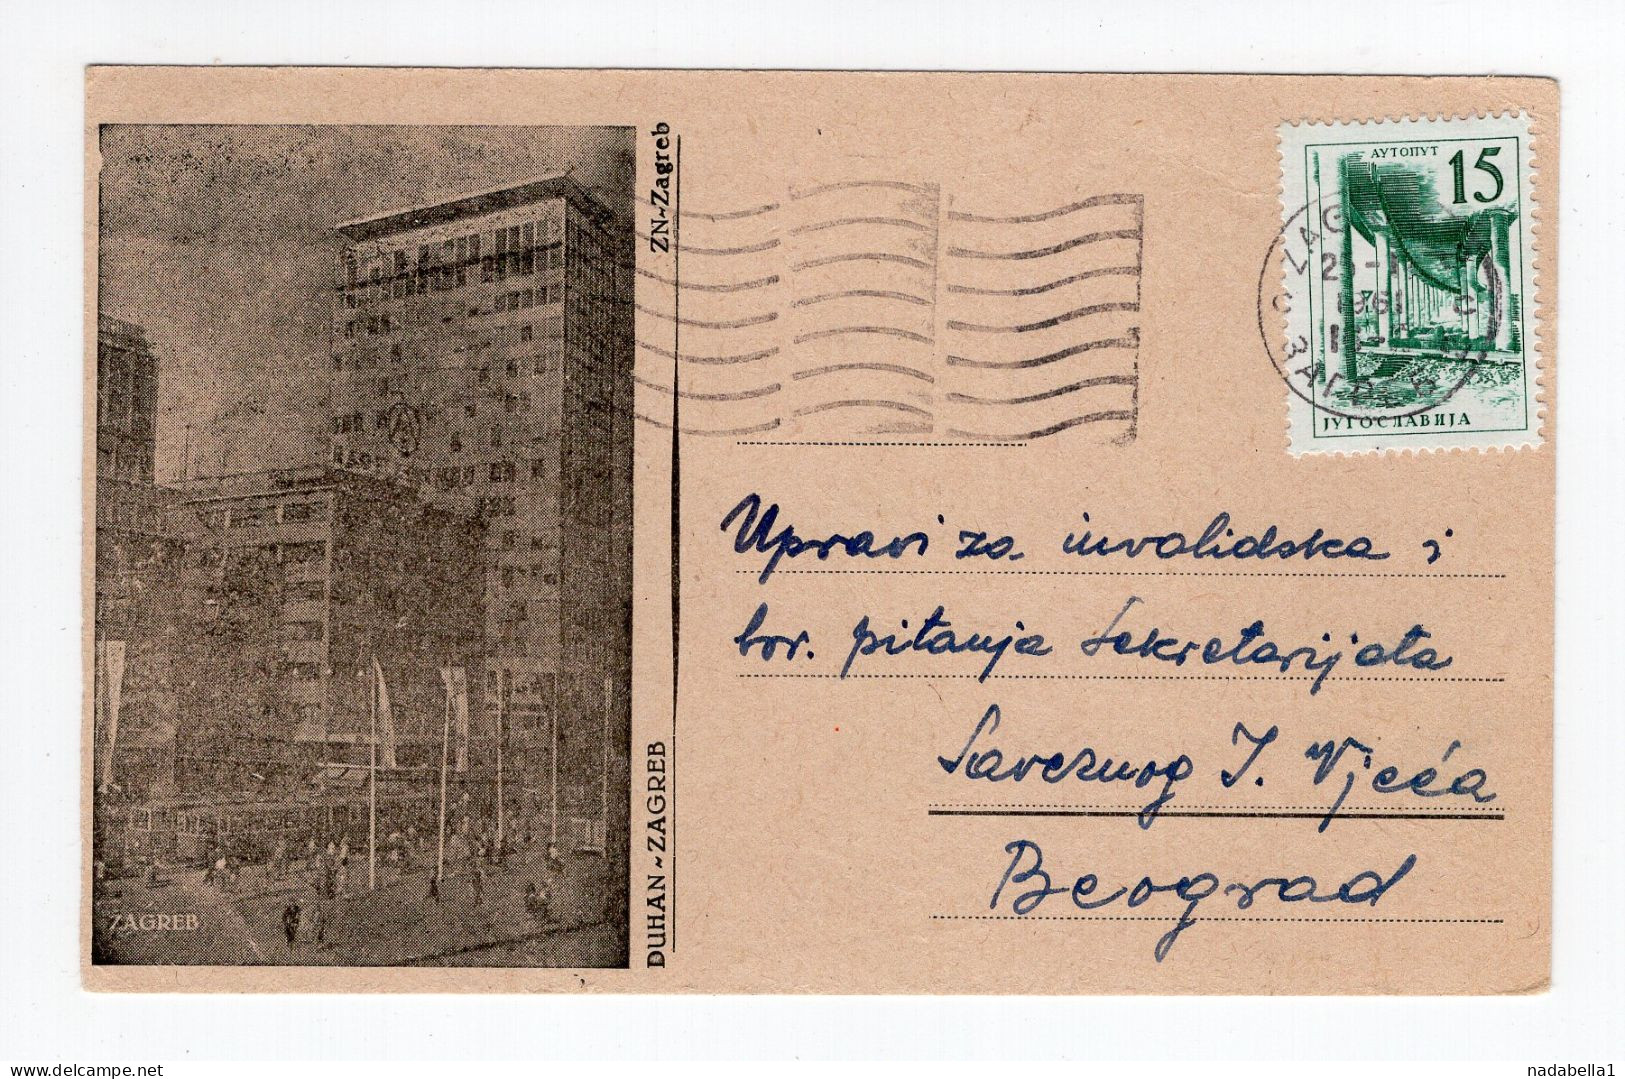 ZAGREB
DUHAN~ZAGREB
ZN~Zagreb
АУТОПУТ
15
ЈУГОСЛАВИЈА
1961
ЗАГРЕБ
Upravi za invalidska i
bor. pitanja Sekretarijata
Saveznog I. Vjeća
Beograd
nadabella1